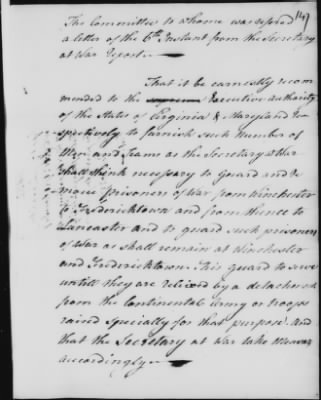 147
The Committee to whome was refered
a letter of the 6th Instant from the Secretary
at War Report
That it be earnestly recom
mended to the supreme Executive Authority
of the States of Virginia & Maryland Re
spectively to furnish such Number of
Men and Teams as the Secretary at War
shall think necessary to Guard and Re
move prisoners of War from Winchester
to Fredericktown and from thence to
Lancaster and to guard such prisoners
of War as shall remain at Winchester
and Fredericktown. This guard to serve
untill they are relieved by a detachment
from the Continental Army or troops
raised Specially for that purpose. And
that the Secretary at War take Measures
accordingly